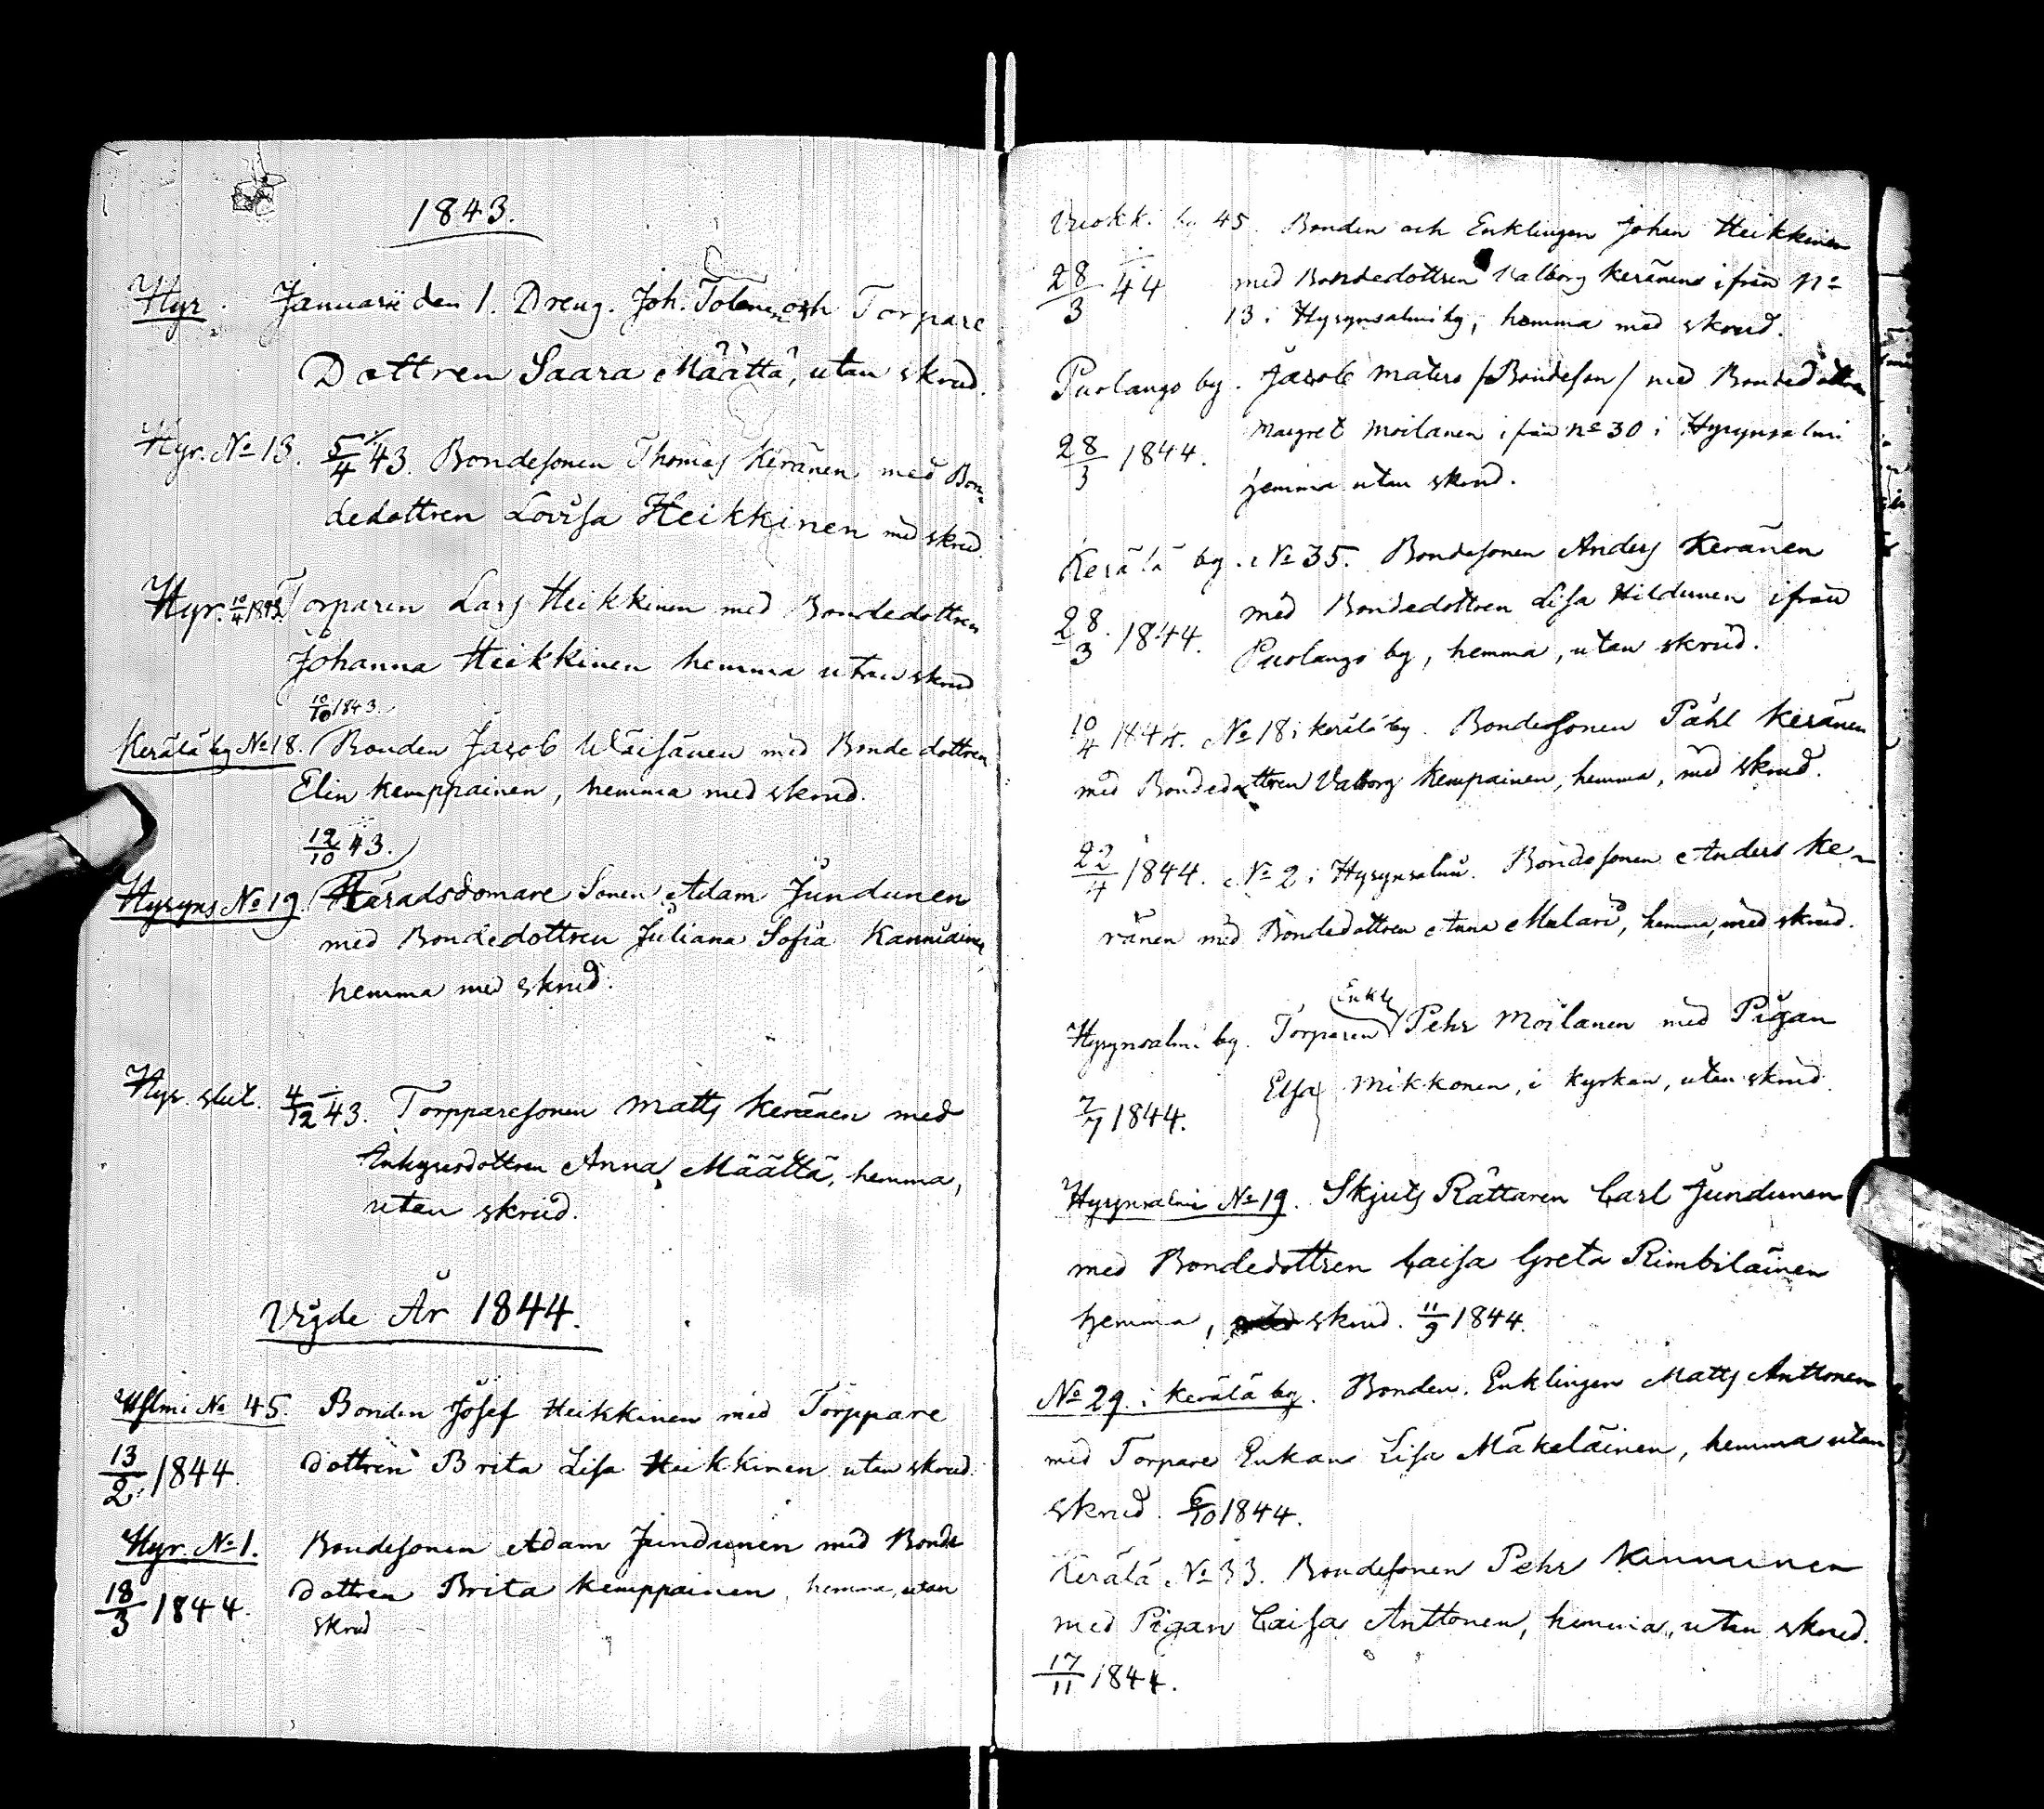 1843.
Hyr. Januarii den 1. Dreng. Joh. Tolonen och Torpare
Dottren Saara Määttä, utan skrud.
Hyr. No 13. 5/4 43. Bondesonen Thomas Keränen med Bon-
dedottren Lovisa Heikkinen med skrud.
Hyr. 10/4 1843. Torparen Lars Heikkinen med Bondedottren
Johanna Heikkinen hemma utan skrud
10/10 1843.
Kerälä by No 18. Bonden Jacob Wäisänen med Bonde dottren
Elin Kemppainen, hemma med skrud.
12/10 43.
Hyryns No 19. Häradsdomare Sonen Adam Jundunen
med Bondedottren Juliana Sofia Kanniainen
hemma med skrud.
Hyr. slut. 4/12 43. Torpparesonen Matts Keränen med
dottren Anna Määttä, hemma,
utan skrud.
Vigde År 1844.
No 45. Bonden Josef Heikkinen med Torppare
13/2 1844. dottren Brita Lisa Heikkinen utan skrud.
Hyr. No 1. Bondesonen Adam Jundunen med Bonde
18/3 1844. dottren Brita Kemppainen, hemma, utan
skrud
Vuokk. by 45. Bonden och Enklingen Johan Heikkinen
28/3 44 med Bondedottren Valborg Keränen ifrån No
13 i Hyrynsalmi by, hemma med skrud.
Puolango by. Jacob Matero /Bondeson/ med Bondedottren
Margret Moilanen ifrån No 30 i Hyrynsalmi
28/3 1844.
hemma utan skrud.
Kerälä by. No 35. Bondesonen Anders Keränen
28/3 1844. med Bondedottren Lisa Hildunen ifrån
Puolango by, hemma, utan skrud.
10/4 1844. No 18 i Kerälä by. Bondesonen Påhl Keränen
med Bondedottren Valborg Kempainen, hemma, med skrud.
22/4 1844. No 2 i Hyrynsalmi. Bondesonen Anders Ke-
ränen med Bondedottren Anna Mulari, hemma, med skrud.
Enkl
Hyrynsalmi by. Torparen Pehr Moilanen med Pigan
Elsa Mikkonen, i Kyrkan, utan skrud.
7/7 1844.
Hyrynsalmi No 19. Skjuts Rättaren Carl Jundunen
med Bondedottren Caisa Greta Rimbiläinen
hemma, skrud. 11/9 1844.
No 29. i Kerälä by. Bonden. Enklingen Matts Anttonen
med Torpare Enkan Lisa Mäkeläinen, hemma utan
skrud. 6/10 1844.
Kerälä No 33. Bondesonen Pehr Kinnunen
med Pigan Caisa Anttonen, hemma, utan skrud.
17/11 1844.